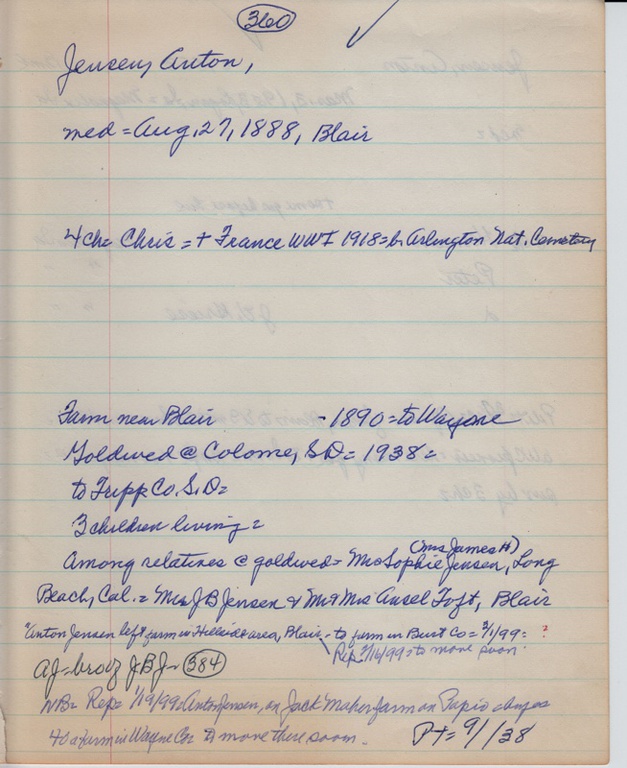 360
Jensen, Anton,
med = Aug. 27, 1888, Blair
4 ch = Chris = + France WWI 1918 = b. Arlington Nat. Cemetery
Farm near Blair - 1890 = to Wayne
Goldwed @ Colome, S.D. = 1938 =
to Tripp Co. S.D. =
3 children living =
(Mrs James H)
Among relatives @ goldwed = Mrs Sophie Jensen, Long
Beach, Cal. = Mrs J B Jensen & Mr & Mrs Ansel Toft, Blair
"Anton Jensen left farm in Hillside area, Blair, - to farm in Burt Co = 3/1/99 = ?
Rep. 2/16/99 = to move soon.
AJ = bro of JBJ = 384
NB = Rep = 1/19/99 = Anton Jensen, on Jack Maher farm on Papio
to a farm in Wayne Co. to move there soon. PT = 9/1/38